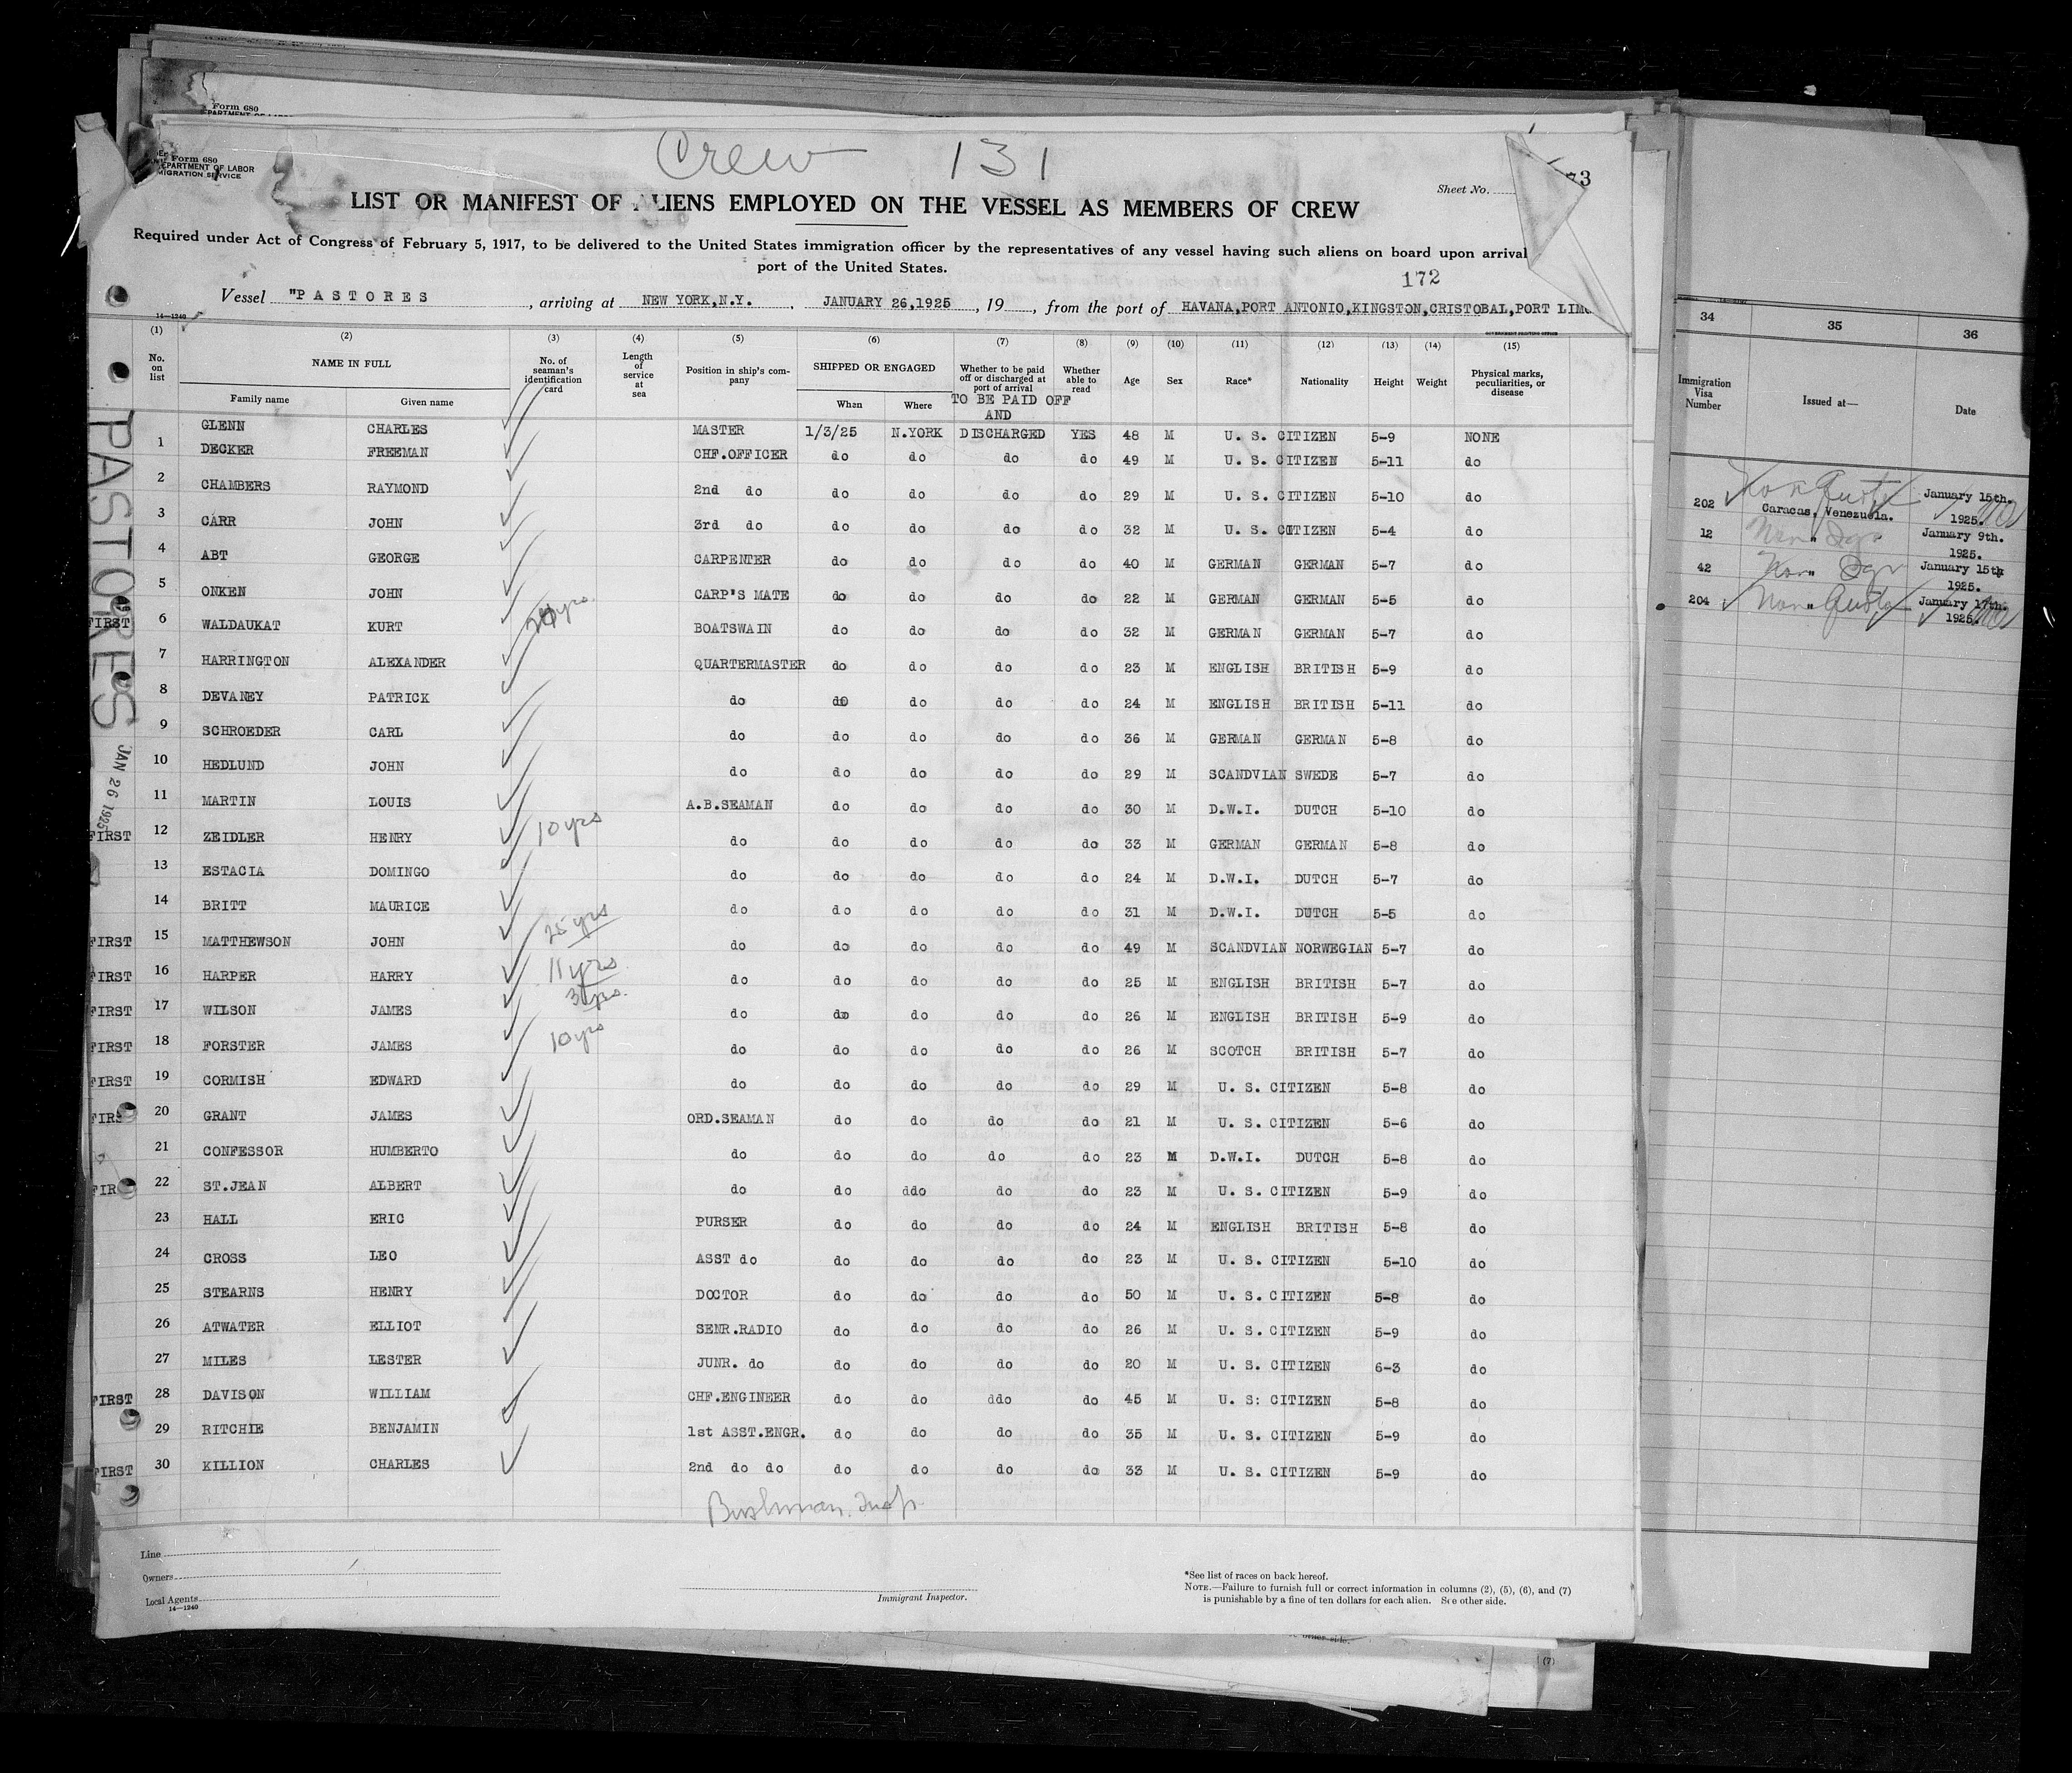 Form 680
Crew 131
Form 680
DEPARTMENT OF LABOR
IMMIGRATION SERVICE
Sheet No.
73
LIST OR MANIFEST OF ALIENS EMPLOYED ON THE VESSEL AS MEMBERS OF CREW
Required under Act of Congress of February 5, 1917, to be delivered to the United States immigration officer by the representatives of any vessel having such aliens on board upon arrival
port of the United States.
172
Vessel "PASTORES, arriving at NEW YORK,N.Y. JANUARY 26,1925, 19, from the port of HAVANA,PORT ANTONIO,KINGSTON,CRISTOBAL,PORT
14—1240
(1) (2) (3) (4) (5) (6) (7) (8) (9) (10) (11) (12) (13) (14) (15)
No. on list NAME IN FULL No. of seaman's identification card Length of service at sea Position in ship's company SHIPPED OR ENGAGED Whether to be paid off or discharged at port of arrival Whether able to read Age Sex Race* Nationality Height Weight Physical marks, peculiarities, or disease
Family name Given name When Where TO BE PAID OFF
AND
GLENN CHARLES MASTER 1/3/25 N.YORK DISCHARGED YES 48 M U. S. CITIZEN 5-9 NONE
1 DECKER FREEMAN CHF.OFFICER do do do do 49 M U. S. CITIZEN 5-11 do
2 CHAMBERS RAYMOND 2nd do do do do do 29 M U. S. CITIZEN 5-10 do
3 CARR JOHN 3rd do do do do do 32 M U. S. CITIZEN 5-4 do
4 ABT GEORGE CARPENTER do do do do 40 M GERMAN GERMAN 5-7 do
5 ONKEN JOHN CARP'S MATE do do do do 22 M GERMAN GERMAN 5-5 do
FIRST 6 WALDAUKAT KURT yrs. BOATSWAIN do do do do 32 M GERMAN GERMAN 5-7 do
7 HARRINGTON ALEXANDER QUARTERMASTER do do do do 23 M ENGLISH BRITISH 5-9 do
8 DEVANEY PATRICK do do do do do 24 M ENGLISH BRITISH 5-11 do
9 SCHROEDER CARL do do do do do 36 M GERMAN GERMAN 5-8 do
10 HEDLUND JOHN do do do do do 29 M SCANDVIAN SWEDE 5-7 do
11 MARTIN LOUIS A.B.SEAMAN do do do do 30 M D.W.I. DUTCH 5-10 do
FIRST 12 ZEIDLER HENRY 10 yrs do do do do do 33 M GERMAN GERMAN 5-8 do
13 ESTACIA DOMINGO do do do do do 24 M D.W.I. DUTCH 5-7 do
14 BRITT MAURICE do do do do do 31 M D.W.I. DUTCH 5-5 do
FIRST 15 MATTHEWSON JOHN 25 yrs do do do do do 49 M SCANDVIAN NORWEGIAN 5-7 do
FIRST 16 HARPER HARRY 11 yrs do do do do do 25 M ENGLISH BRITISH 5-7 do
FIRST 17 WILSON JAMES 3 yrs. do do do do do 26 M ENGLISH BRITISH 5-9 do
FIRST 18 FORSTER JAMES 10 yrs do do do do do 26 M SCOTCH BRITISH 5-7 do
FIRST 19 CORMISH EDWARD do do do do do 29 M U. S. CITIZEN 5-8 do
FIRS 20 GRANT JAMES ORD.SEAMAN do do do do 21 M U. S. CITIZEN 5-6 do
21 CONFESSOR HUMBERTO do do do do do 23 M D.W.I. DUTCH 5-8 do
FIR 22 ST.JEAN ALBERT do do ddo do do 23 M U. S. CITIZEN 5-9 do
23 HALL ERIC PURSER do do do do 24 M ENGLISH BRITISH 5-8 do
24 CROSS LEO ASST do do do do do 23 M U. S. CITIZEN 5-10 do
25 STEARNS HENRY DOCTOR do do do do 50 M U. S. CITIZEN 5-8 do
26 ATWATER ELLIOT SENR.RADIO do do do do 26 M U. S. CITIZEN 5-9 do
27 MILES LESTER JUNR. do do do do do 20 M U. S. CITIZEN 6-3 do
FIRST 28 DAVISON WILLIAM CHF.ENGINEER do do ddo do 45 M U. S: CITIZEN 5-8 do
29 RITCHIE BENJAMIN 1st ASST.ENGR. do do do do 35 M U. S. CITIZEN 5-9 do
FIRST 30 KILLION CHARLES 2nd do do do do do do 33 M U. S. CITIZEN 5-9 do
Bushman. Insp.
PASTORES
JAN 26 1925
Line
Owners
Local Agents
14—1240
Immigrant Inspector.
*See list of races on back hereof.
NOTE.—Failure to furnish full or correct information in columns (2), (5), (6), and (7)
is punishable by a fine of ten dollars for each alien. See other side.
other side.
(7)
34 35 36
Immigration Visa Number Issued at— Date
202 Non Quota Caracas, Venezuela. January 15th. 1925.
12 Non " January 9th. 1925.
42 Non " January 15th 1925.
204 Non " Quota January 17th. 1925.